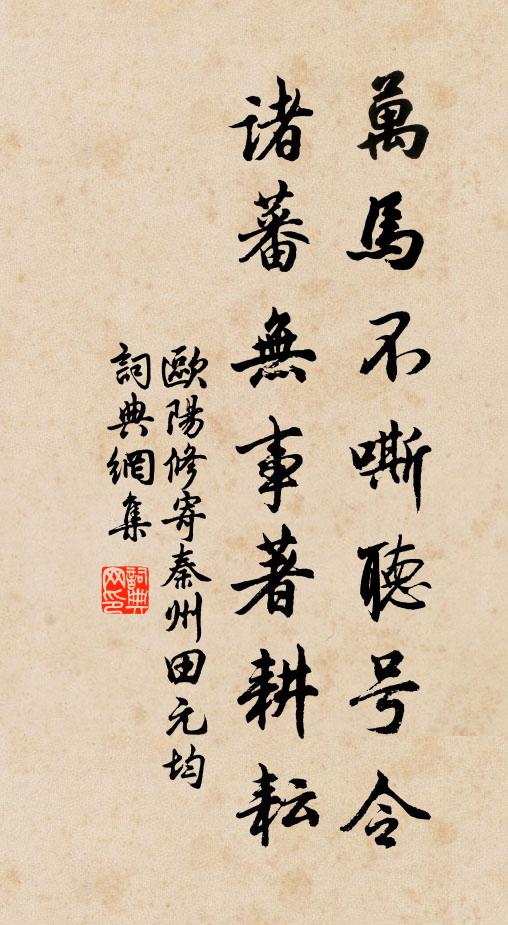 萬馬不嘶聽号令
諸蕃無事著耕耘
歐陽修寄秦州田元均
詞典網集
詞典网印